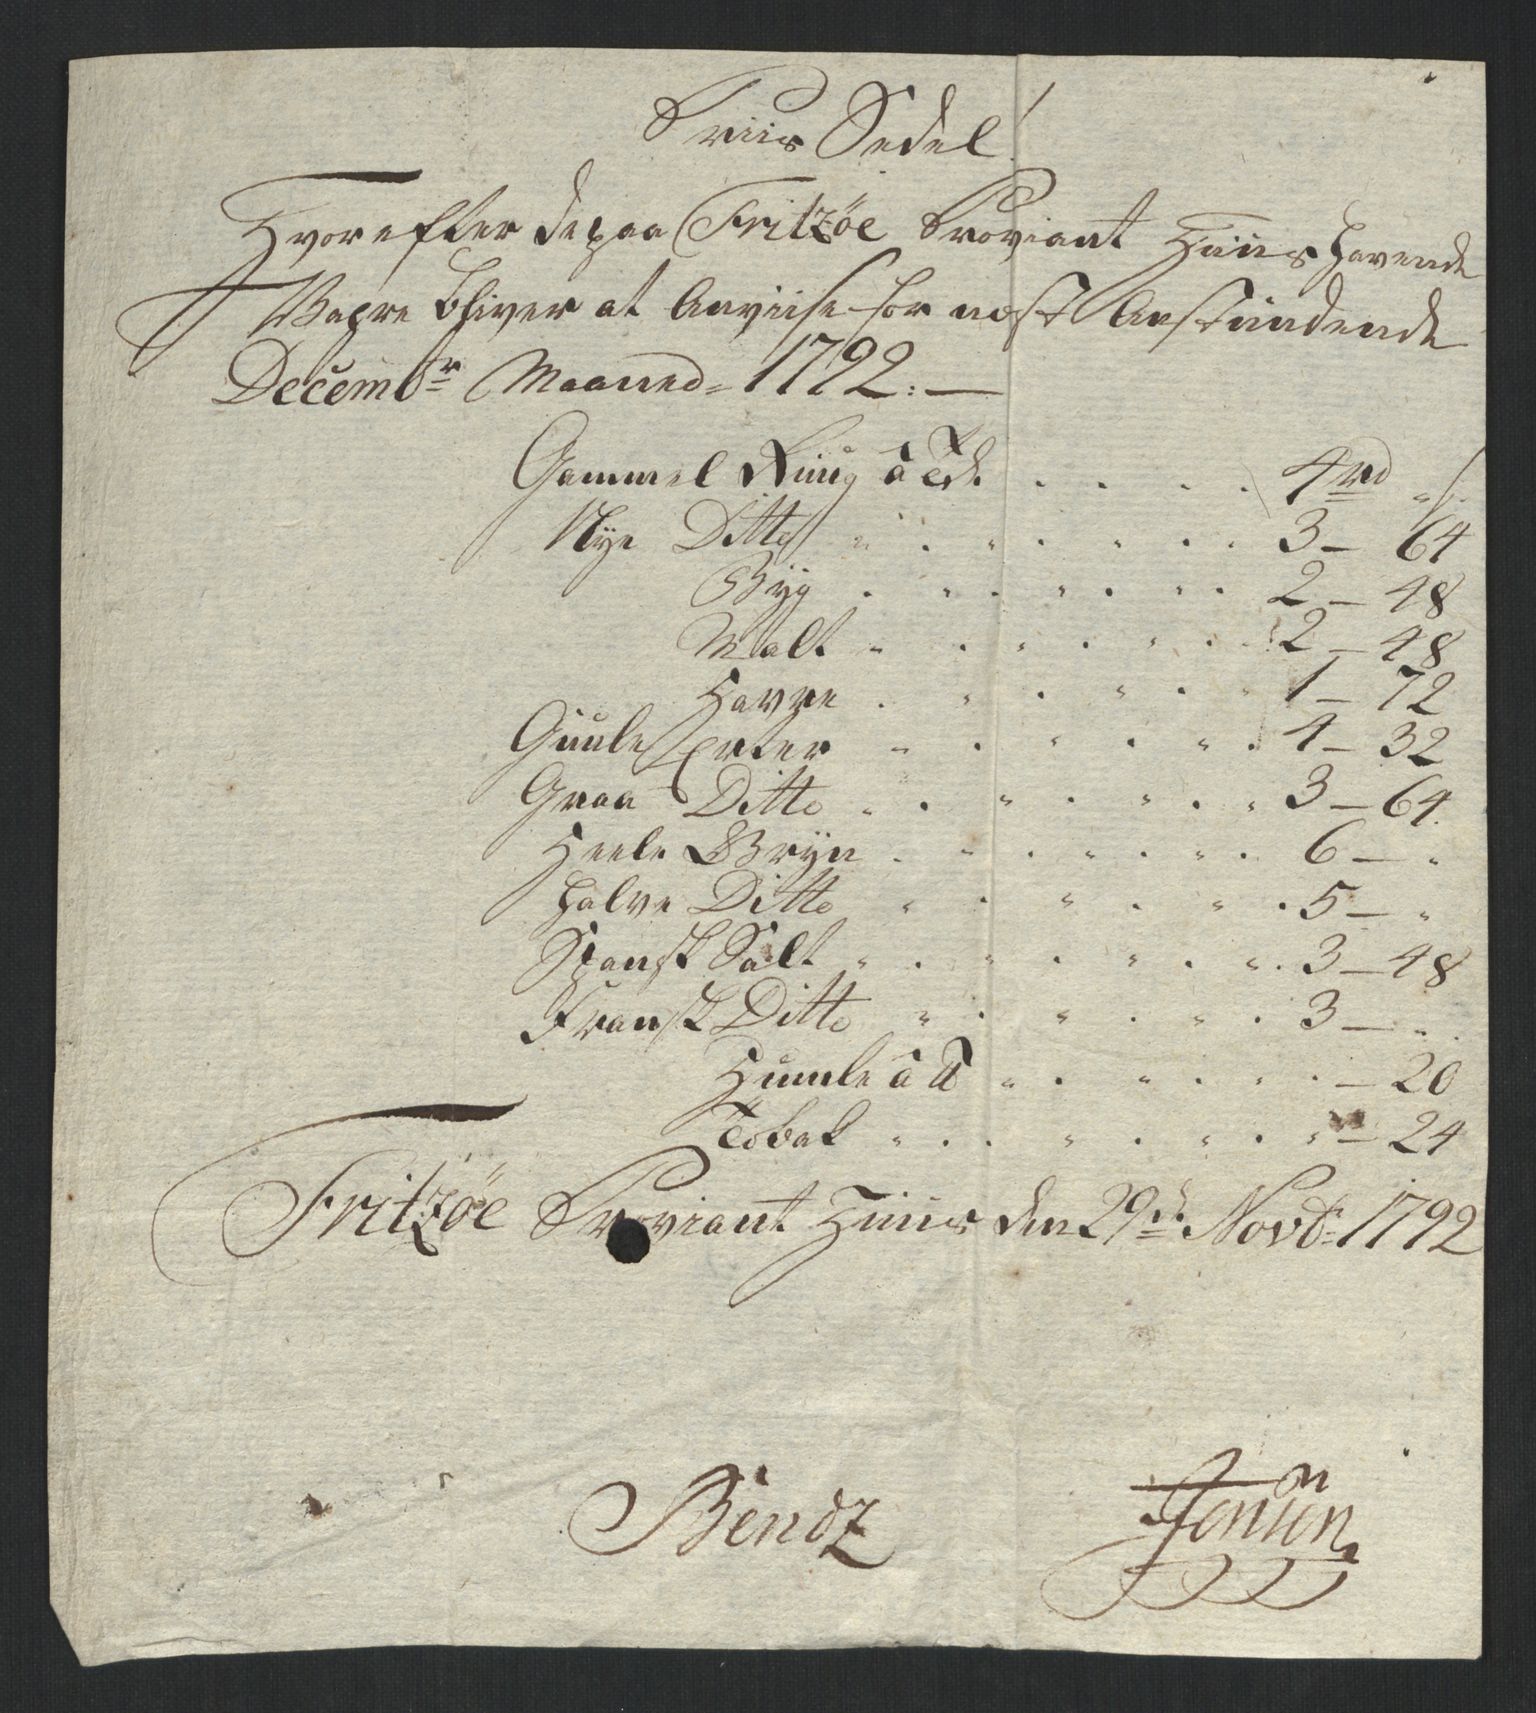 Priis Sedel
Hvorefter de paa Fritzøe Proviant Huus havende
Vahre bliver at Anviise for næst Anstundende
Decembr Maaned 1792:—
Gammel Ruug à Tde . . . . 4 rd „ s.
Nÿe Ditto „ . „ . „ . . 3 – 64
Bÿg . „ . „ . „ . 2 – 48
Malt „ . „ . „ . 2 – 48
Havre . „ . „ . „ 1 – 72
Guule Erter „ . „ . „ . 4 – 32
Graa Ditto „ . „ . „ . „ 3 – 64
Heele Grÿn . „ . „ . „ . 6 – „
halve Ditto „ . „ . „ . 5 – „
Spansk Salt „ . „ . „ . „ . 3 – 48
Fransk Ditto „ . „ . „ . 3 – „
Humle à ℔ „ . „ . „ . – 20
Tobak „ . . „ . „ . „ – 24
Fritzöe Proviant Huus den 29de Novbr 1792
Bendz Jensen